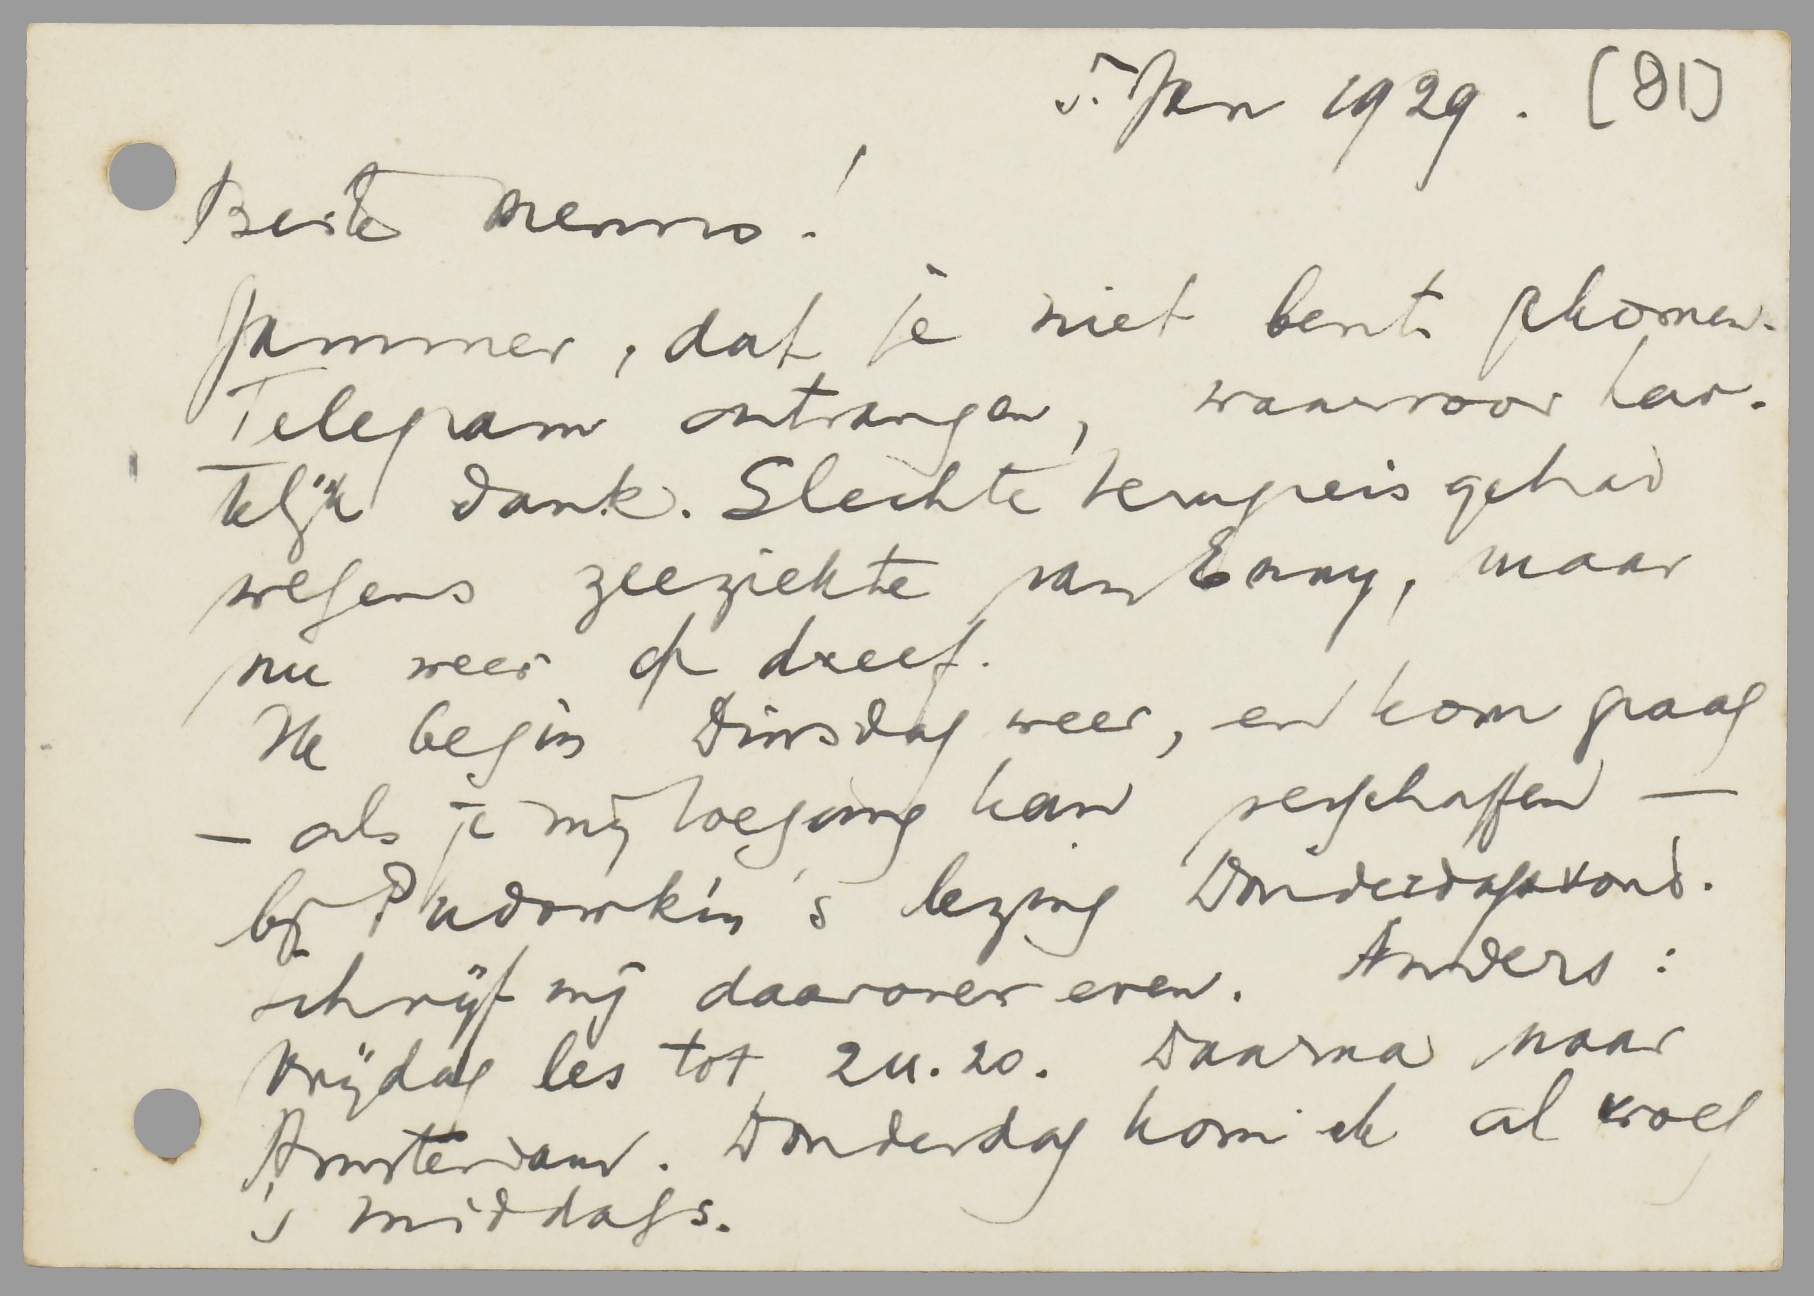 5 Jan 1929. [81]
Beste Menno!
Jammer, dat je niet bent gekomen.
Telegram ontvangen, waarvoor har-
telijk dank. Slechte terugreis gehad
wegens zeeziekte van Enny, maar
nu weer op dreef.
Ik begin Dinsdag weer, en kom graag
– als je mij toegang kan verschaffen –
bij Pudowkin's lezing Donderdagavond.
Schrijf mij daarover even. Anders:
Vrijdag les tot 2u.20. Daarna naar
Amsterdam. Donderdag kom ik al vroeg
's middags.